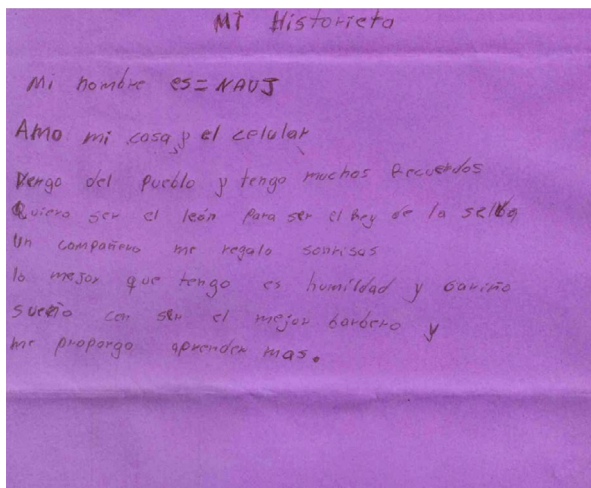 Mi Historieta
Mi nombre es= NAUJ
Amo mi casa y el celular
Vengo del Pueblo y tengo muchos Recuerdos
Quiero ser el león Para ser el Rey de la selva
Un compañero me regalo sonrisas
lo mejor que tengo es humildad y cariño
sueño con ser el mejor barbero y
me propongo aprender mas.